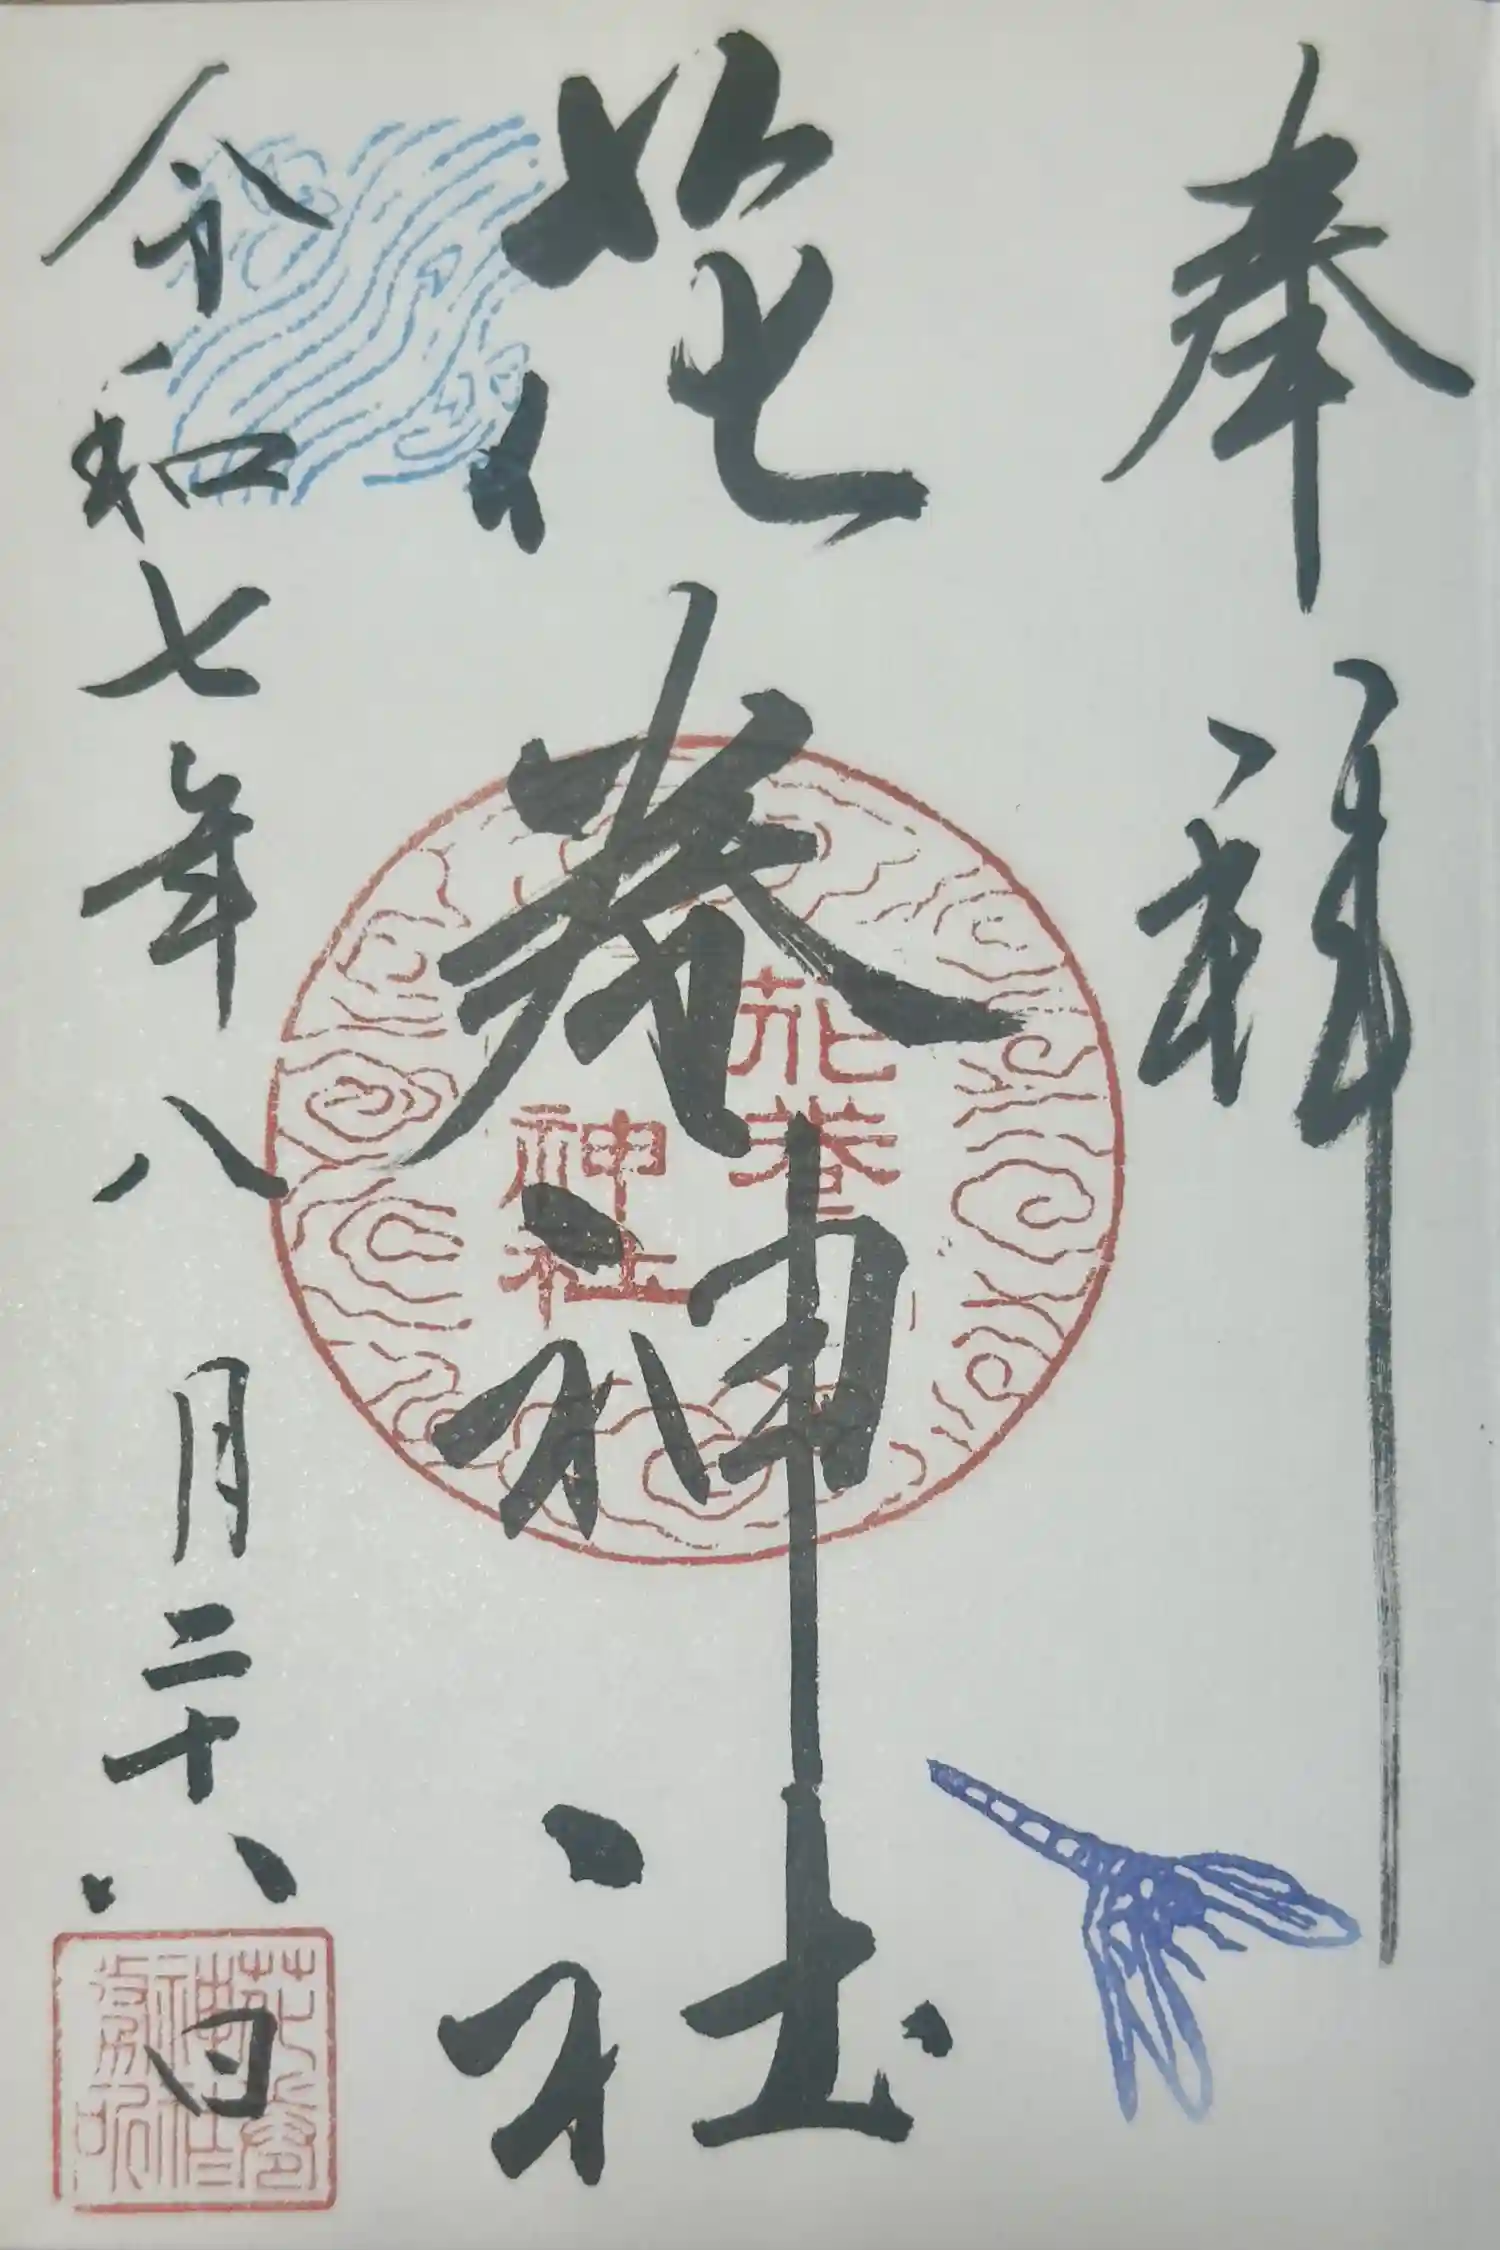 奉拝
花巻神社
令和七年八月二十八日
花巻
神社
花巻
神社